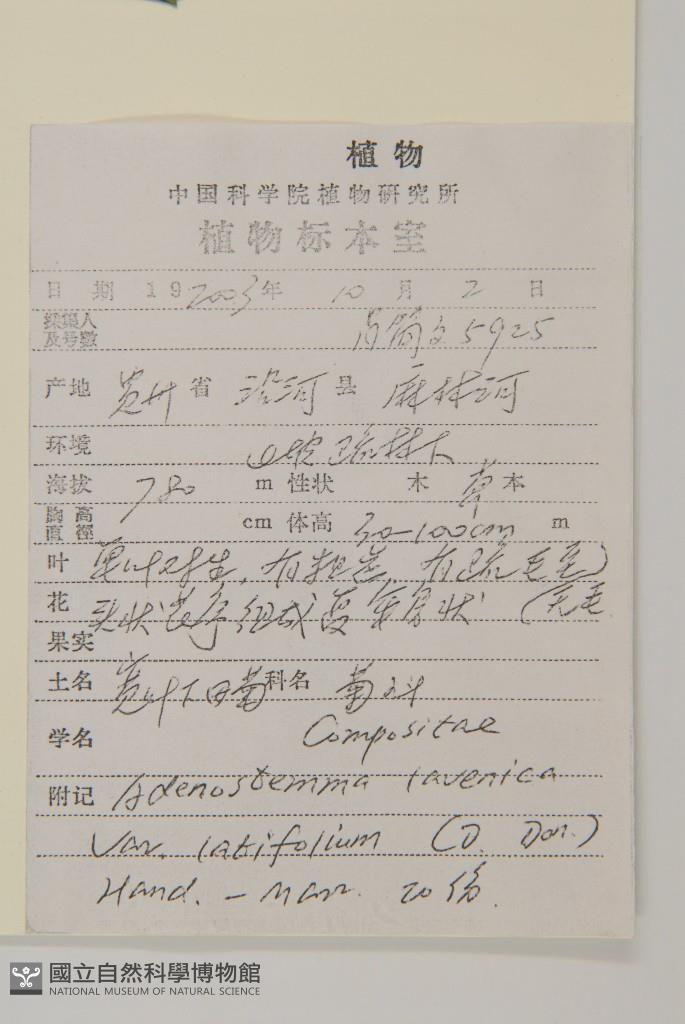 植物
中国科学院植物研究所
植物标本室
日 期 19 2003年 10 月 2 日
採集人
及号数 肖简文 5925
产地 贵州 省 沿河 县 麻林河
环境 山坡疏林下
海拔 780 m 性状 木 草 本
胸高
直径 cm 体高 30-100cm m
叶 单叶对生,有粗齿,有疏毛至
花 头状花序组成复伞房状 (无毛
果实
土名 宽叶下田菊 科名 菊科
学名 Compositae
附记 Adenostemma lavenica
Var. latifolium (D. Don.)
Hand. - Mazz. 20份.
國立自然科學博物館
NATIONAL MUSEUM OF NATURAL SCIENCE